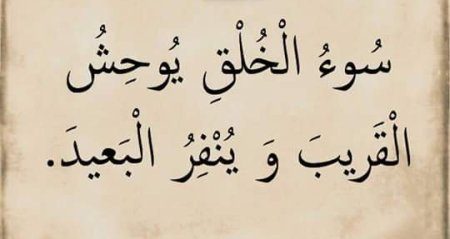 سُوءُ الْخُلْقِ يُوحِشُ
الْقَريبَ وَ يُنْفِرُ الْبَعيدَ.